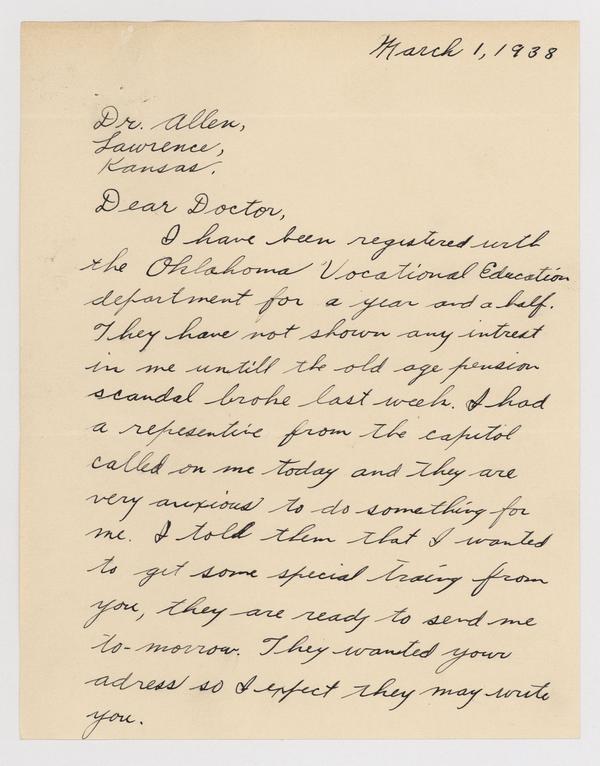 March 1, 1938
Dr. Allen,
Lawrence,
Kansas.
Dear Doctor,
I have been registered with
the Oklahoma Vocational Education
department for a year and a half.
They have not shown any intrest
in me untill the old age pension
scandal broke last week. I had
a repesentive from the capitol
called on me today and they are
very anxious to do something for
me. I told them that I wanted
to get some special traing from
you, they are ready to send me
to-morrow. They wanted your
adress so I expect they may write
you.